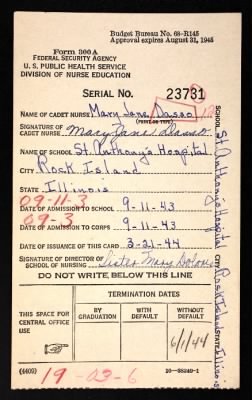 Budget Bureau No. 68-R145
Approval expires August 31, 1945
Form 300A
FEDERAL SECURITY AGENCY
U. S. PUBLIC HEALTH SERVICE
DIVISION OF NURSE EDUCATION
SERIAL NO. 23731
NAME OF CADET NURSE Mary Jane Dasso
(PRINT OR TYPE)
SIGNATURE OF CADET NURSE Mary Jane Dasso
NAME OF SCHOOL St. Anthony's Hospital
CITY Rock Island
STATE Illinois
09-11-3
DATE OF ADMISSION TO SCHOOL 9-11-43
09-3
DATE OF ADMISSION TO CORPS 9-11-43
DATE OF ISSUANCE OF THIS CARD 3-21-44
SIGNATURE OF DIRECTOR OF SCHOOL OF NURSING Sister Mary
DO NOT WRITE BELOW THIS LINE
THIS SPACE FOR CENTRAL OFFICE USE
TERMINATION DATES
BY GRADUATION
WITH DEFAULT
WITHOUT DEFAULT
6/1/44
(4409)
19-03-6
SCHOOL St. Anthony's Hospital CITY Rock Island STATE Illinois